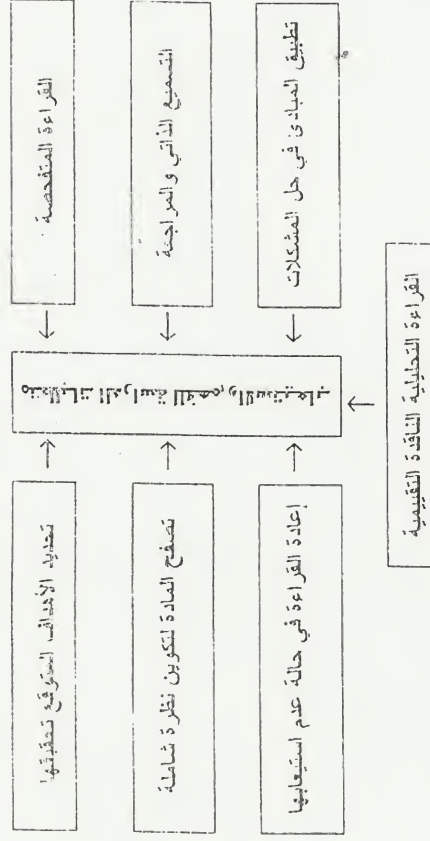 القراءة المتفحصة
التسميع الذاتي والمراجعة
تطبيق المبادئ في حل المشكلات
متطلبات الدراسة للفهم والاستيعاب
تحديد الأهداف المتوقع تحقيقها
تصفح المادة لتكوين نظرة شاملة
إعادة القراءة في حالة عدم استيعابها
القراءة التحليلية الناقدة التقييمية